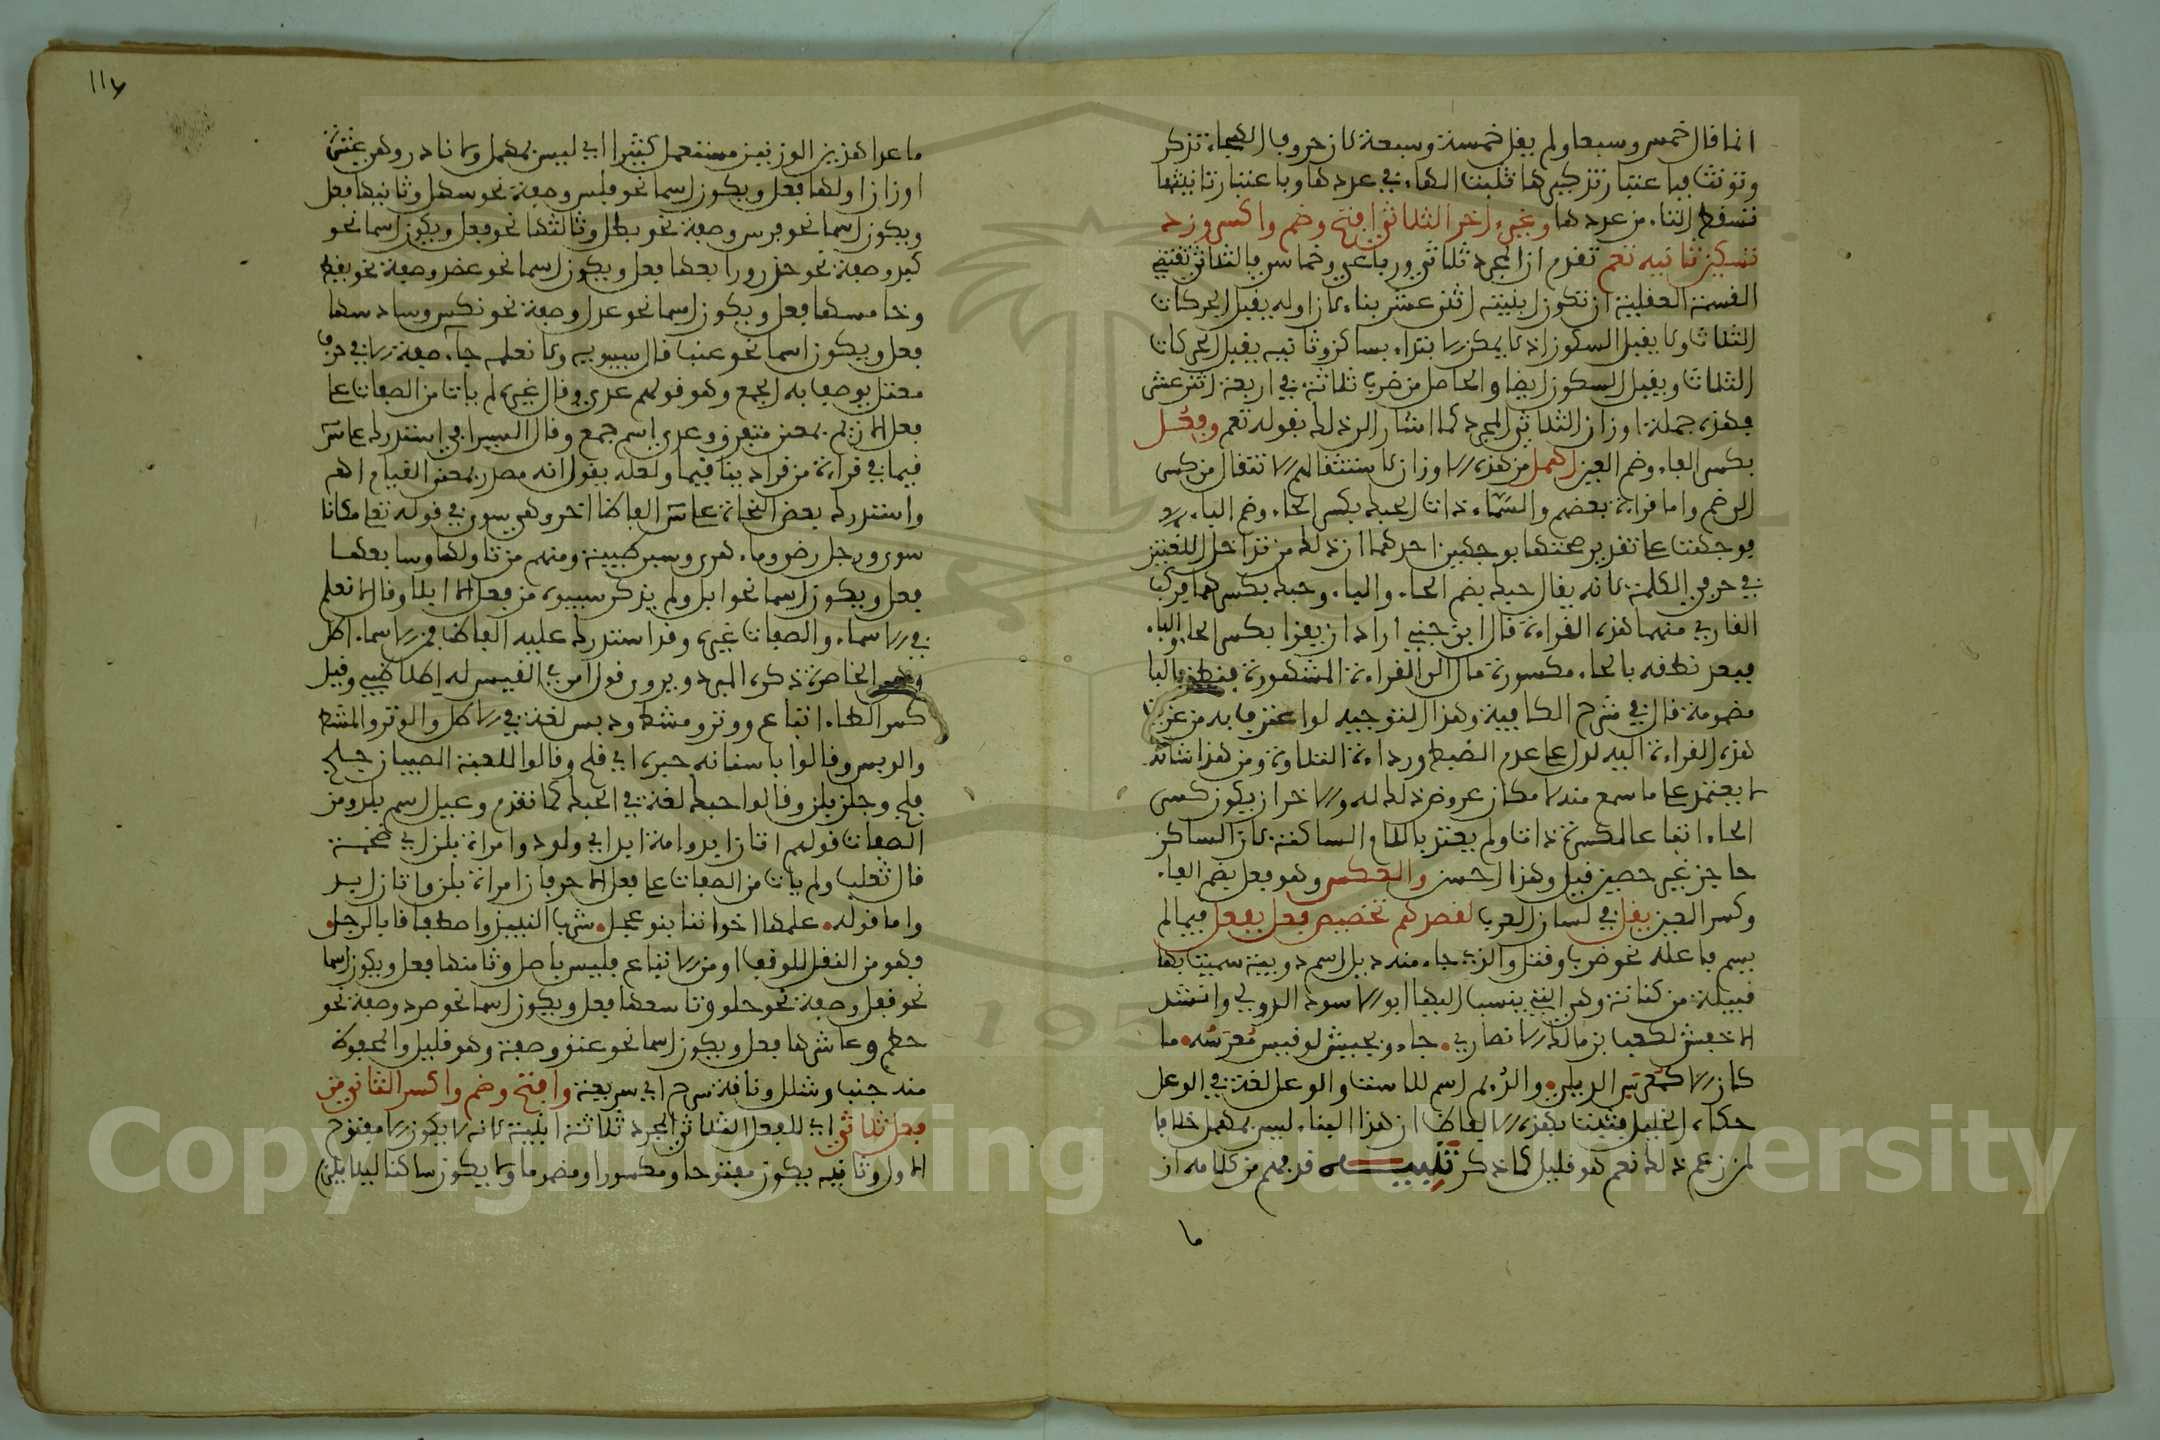 انما قال خمس وسبعا ولم يقل خمسة وسبعة لان حروف الهجاء تذكر
وتونث فباعتبار تذكيرها تثبت الهاء في عددها وباعتبار تانيثها
تسقط التاء من عددها وغير اخر الثلاثي افتح وضم واكسر وزد
تسكين ثانيه تعم تقدم ان المجرد ثلاثي ورباعي وخماسي فالثلاثي تقتضي
القسمة العقلية ان تكون ابنيته اثني عشر بناء لان اوله يقبل الحركات
الثلاث ولا يقبل السكون اذ لا يمكن الابتداء بساكن وثانيه يقبل الحركات
الثلاث ويقبل السكون ايضا والحاصل من ضرب ثلاثة في اربعة اثني عشر
فهذه جملة اوزان الثلاثي المجرد كما اشار الى ذلك بقوله تعم وفعل
بكسر الفاء وضم العين اهمل من هذه الاوزان لاستثقالهم الانتقال من كسر
الى ضم واما قراءة بعضهم والسماء ذات الحبك بكسر الحاء وضم الباء
فوجهت على تقدير صحتها بوجهين احدهما ان ذلك من تداخل اللغتين
في حرفي الكلمة لانه يقال حبك بضم الحاء والباء وحبك بكسرهما فركب
القاري منهما هذه القراءة قال ابن جني اراد ان يقرا بكسر الحاء والباء
فبعد نطقه بالحاء مكسورة مال الى القراءة المشهورة فنطق بالبا
مضمومة قال في شرح الكافية وهذا التوجيه لو اعترف به من عزيت
هذه القراءة اليه لدل على عدم الضبط ورداءة التلاوة ومن هذا شانه
لا يعتمد على ما سمع منه لامكان عروض ذلك له والاخر ان يكون كسر
الحاء اتباعا لكسرة ذات ولم يعتد باللام الساكنة لان الساكن
حاجز غير حصين قيل وهذا احسن والعكس وهو فعل بضم الفاء
وكسر العين يقل في لسان العرب لقصدهم تخصيص فعل بفعل فيما لم
يسم فاعله نحو ضرب وقتل والذي جاء منه دئل اسم دويبة سميت بها
قبيلة من كنانة وهي التي ينسب اليها ابو الاسود الدؤلي وانشد
الاخفش لكعب بن مالك الانصاري جاءو بجيش لو قيس معرسه ما
كان الا كمعرس الدئل والرئم اسم للاست والوعل لغة في الوعل
حكاه الخليل فثبت بهذه الالفاظ ان هذا البناء ليس بمهمل خلافا
لمن زعم ذلك نعم هو قليل كما ذكر تنبيه قد فهم من كلامه ان
ما
ما عدا هذين الوزنين مستعمل كثيرا اي ليس بمهمل ولا نادر وهي عشرة
اوزان اولها فعل ويكون اسما نحو فلس وصفة نحو سهل وثانيها فعل
ويكون اسما نحو فرس وصفة نحو بطل وثالثها نحو فعل ويكون اسما نحو
كبد وصفة نحو حذر ورابعها فعل ويكون اسما نحو عضد وصفة نحو يقظ
وخامسها فعل ويكون اسما نحو عدل وصفة نحو نكس وسادسها
فعل ويكون اسما نحو عنب قال سيبويه ولا نعلمه جاء صفة الا في حرف
معتل يوصف به الجمع وهو قولهم عدى وقال غيره لم يات من الصفات على
فعل الا زيم بمعنى متفرق وعدى اسم جمع وقال السيرافي استدرك على س
قيما في قراءة من قرا دينا قيما ولعله يقول انه مصدر بمعنى القيام اهـ
واستدرك بعض النحاة على س الفاظا اخر وهي سوى في قوله تعا مكانا
سوى ورجل رضى وماء روى وسبى طيبة ومنهم من تاولها وسابعها
فعل ويكون اسما نحو ابل ولم يذكر سيبويه من فعل الا ابلا وقال لا نعلم
في الاسماء والصفات غيره وقد استدرك عليه الفاظ فمن الاسماء اطل
الخاصرة ذكره المبرد ويروى قول امرئ القيس له اطلا ظبي وقيل
كسر الطاء اتباع ووتد ومشط ودبس لغة في الاطل والوتد والمشط
والدبس وقالوا باسنانه حبرة اي قلح وقالوا للعبة الصبيان جلخ
جلب وجلن بلن وقالوا حبك لغة في الحبك كما تقدم وعيل اسم بلد ومن
الصفات قولهم اتان ابد وامة ابد اي ولود وامراة بلز اي ضخمة
قال ثعلب ولم يات من الصفات على فعل الا حرفان امراة بلز واتان ابد
واما قوله علمها اخواننا بنو عجل شرب النبيذ واصطفافا بالرجل
فهو من النقل للوقف او من الاتباع فليس باصل وثامنها فعل ويكون اسما
نحو قفل وصفة نحو حلو وتاسعها فعل ويكون اسما نحو صرد وصفة نحو
حطم وعاشرها فعل ويكون اسما نحو عنق وصفة وهو قليل والمحفوظ
منه جنب وشلل وناقة سرح اي سريعة وافتح وضم واكسر الثاني من
فعل ثلاثي اي للفعل الثلاثي المجرد ثلاثة ابنية لانه لا يكون الا مفتوح
الاول وثانيه يكون مفتوحا ومكسورا ومضموما ولا يكون ساكنا ليلا يلزم
Copyright © King Saud University
195